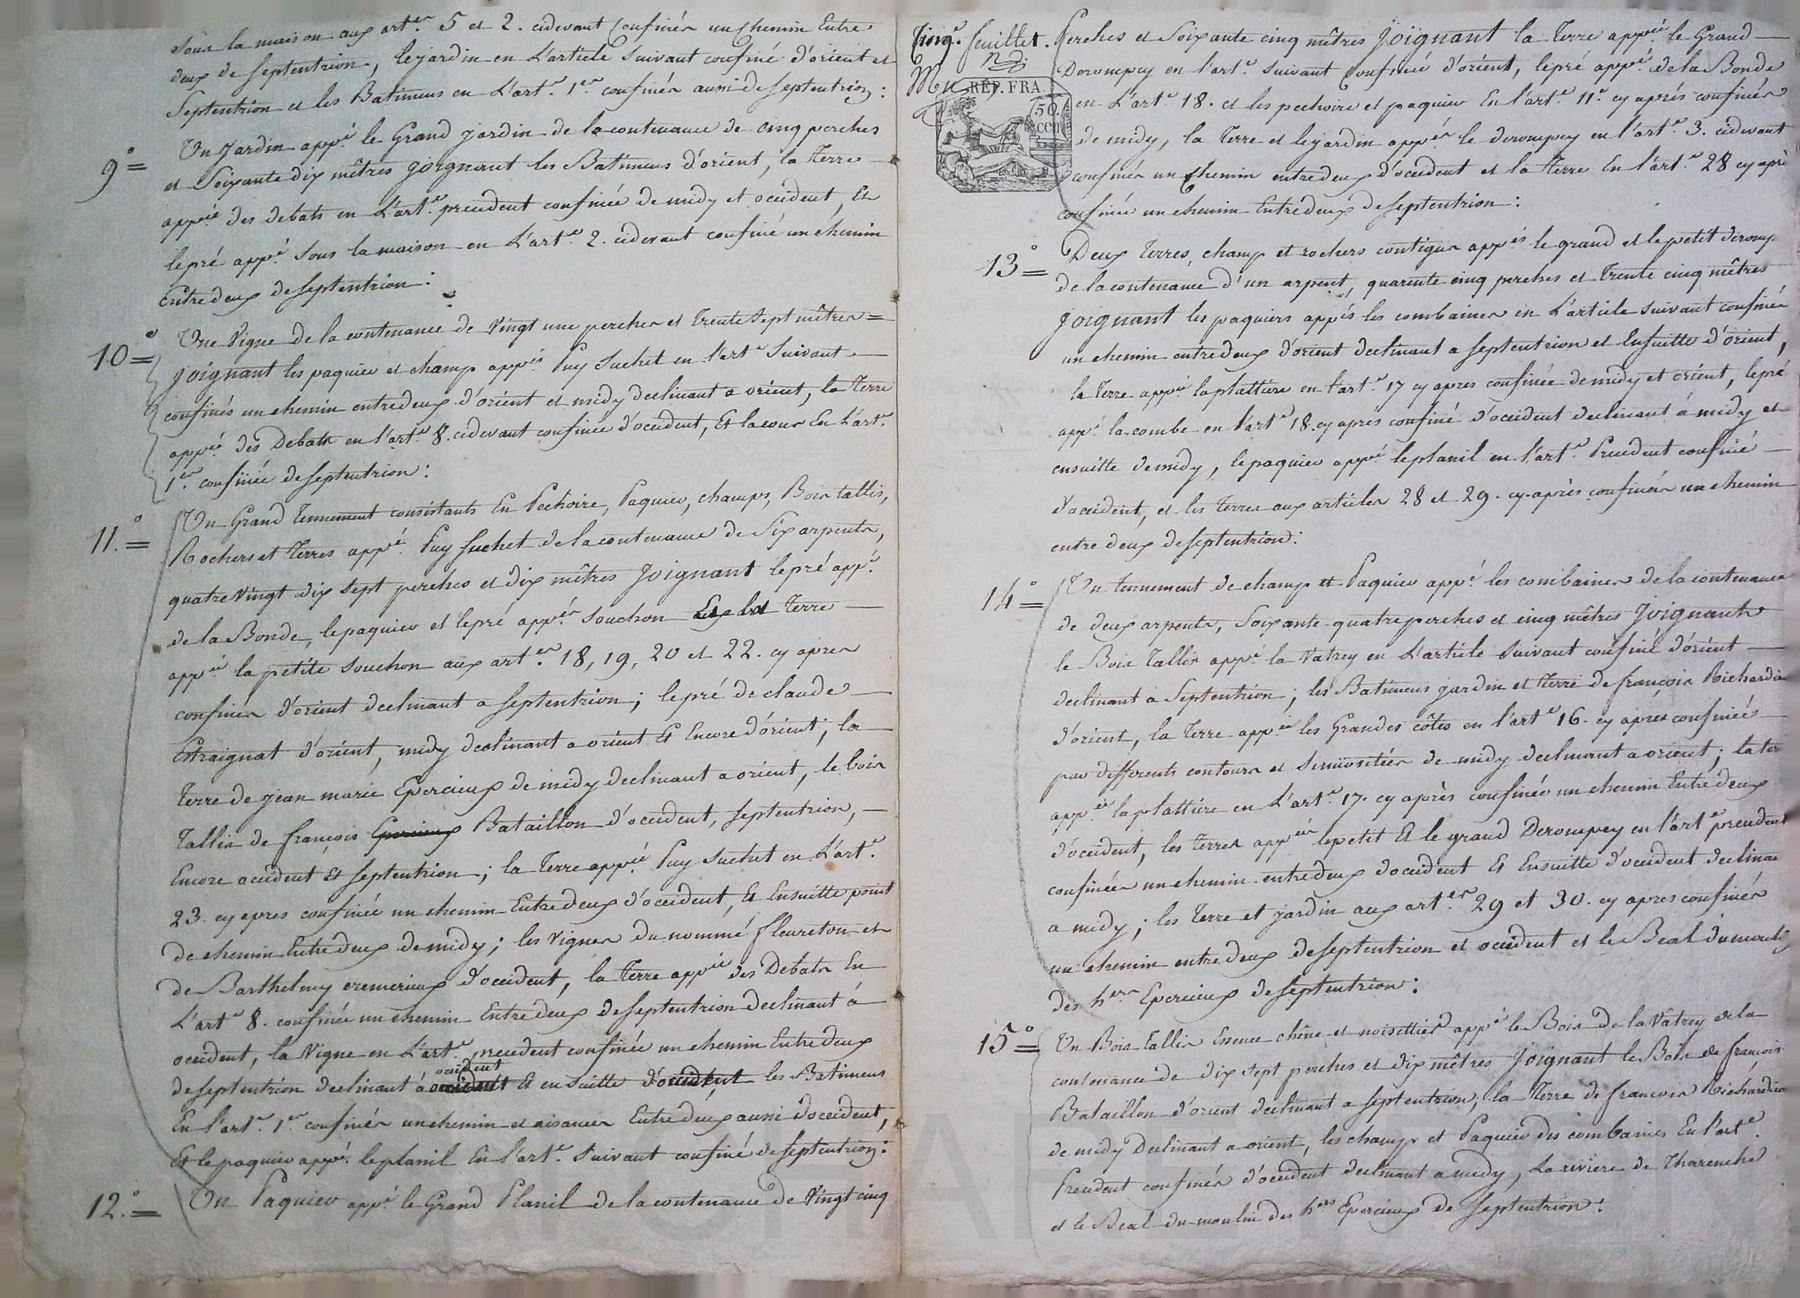 sous la maison aux art.es 5 et 2. cidevant confinés un chemin Entre
deux de septentrion, le jardin en L'article suivant confiné d'orient et
Septentrion et les Batimens en L'art.e 1er confinés aussi de septentrion;
9°= Un Jardin app.é le Grand jardin de la contenance de cinq perches
et Soixante dix mêtres joignant les Batimens d'orient, la terre
app.ée des debats en L'art.e precedent confinée de midy et occident, Et
le pré app.é sous la maison en L'art.e 2. cidevant confiné un chemin
Entredeux de septentrion:
10°= Une Vigne de la contenance de Vingt une perches et Trente sept mêtres =
joignant les paquier et champ app.és Puy Suchet en l'art.e Suivant
confinés un chemin entredeux d'orient et midy declinant a orient, la Terre
app.ée des Debats en l'art.e 8. cidevant confinée d'occident, Et la cour En L'art.e
1.er confinée de septentrion:
11.°= Un Grand Tennement consistants En Pechoire, Paquier, champs, Bois tallis,
Rochers et Terres app.é Puy Suchet de la contenance de Six arpents,
quatre Vingt dix sept perches et dix mêtres Joignant le pré app.é
de la Bonde, le paquier et le pré app.és souchon Et la Terre
app.ée la petite souchon aux art.es 18, 19, 20 et 22. cy apres
confinés d'orient declinant a septentrion; le pré de claude
Estraignat d'orient, midy declinant a orient Et Encore d'orient, la
Terre de jean marie Epercieux de midy declinant a orient, le bois
Tallis de françois Epercieux Bataillon d'occident, septentrion,
Encore occident Et septentrion; la Terre app.ée Puy Suchet en L'art.e
23. cy apres confinée un chemin Entredeux d'occident, Et Ensuitte point
de chemin Entredeux de midy; les Vignes du nommé fleureton et
de Barthelmy d'occident, la Terre app.ée des Debats En
L'art.e 8. confinée un chemin Entredeux de septentrion declinant à
occident, la Vigne en L'art.e precedent confinée un chemin Entredeux
occident
de septentrion declinant à occident Et en suitte d'occident les Batimens
En l'art.e 1.er confinés un chemin et aisances Entredeux aussi d'occident,
Et le paquier app.é le planil En l'art.e Suivant confiné de septentrion:
12.°= Un Paquier app.é le Grand Planil de la contenance de Vingt cinq
Cinq.e feuillet.
RÉP. FRA.
50
CEN
Perches et Soixante cinq mêtres Joignant la Terre app.ée le Grand
Derompey en l'art.e suivant confinée d'orient, le pré app.é de la Bonde
en L'art.e 18. et les pechoire et paquier En l'art.e 11.e cy après confinés
de midy, la Terre et le jardin app.és le derompey en l'art.e 3. cidevant
confinés un chemin entredeux d'occident et la Terre En l'art.e 28 cy après
confinée un chemin Entredeux de septentrion:
13°= Deux Terres, champ et rochers contigus app.és le grand et le petit deromp.
de la contenance d'un arpent, quarente cinq perches et Trente cinq mêtres
Joignant les paquiers app.és les combaines en L'article suivant confinés
un chemin entredeux d'orient declinant a septentrion et Ensuitte d'orient,
la Terre app.ée la plattiere en l'art.e 17 cy apres confinée de midy et orient, le pré
app.é la combe en l'art.e 18. cy apres confiné d'occident declinant à midy et
ensuitte de midy, le paquier app.é le planil en l'art.e Precedent confiné
d'occident, et les Terres aux articles 28 et 29. cy après confinés un chemin
entre deux de septentrion:
14°= Un tennement de champ et Paquier app.é les combaines de la contenance
de deux arpents, Soixante quatre perches et cinq mêtres Joignants
le Bois Tallis app.é la Vatrey en L'article Suivant confiné d'orient
declinant a Septentrion; les Batimens jardin et Terre de françois Richardin
d'orient, la Terre app.ée les Grandes côtes en l'art.e 16. cy apres confinées
par differents contours et sinuosités de midy declinant a orient; la ter
app.ée la plattiere en L'art.e 17. cy après confinée un chemin Entredeux
d'occident, les Terres app.ées le petit Et le grand Derompey en l'art.e precedent
confinées un chemin entredeux d'occident Et Ensuitte d'occident declinan
a midy; les Terre et jardin aux art.es 29 et 30. cy apres confinés
un chemin entre deux de septentrion et occident et le Beal du moulin
des h.ers Epercieux de septentrion:
15°= Un Bois Tallis Essence chêne et noisettier app.é le Bois de la Vatrey de la
contenance de dix sept perches et dix mêtres Joignant le Bois de françois
Bataillon d'orient declinant a septentrion, la Terre de francois Richardin
de midy declinant a orient, les champs et Paquier des combaines En l'art.e
Precedent confinés d'occident declinant a midy, La riviere de Tharenche
et le Beal du moulin des h.ers Epercieux de septentrion: